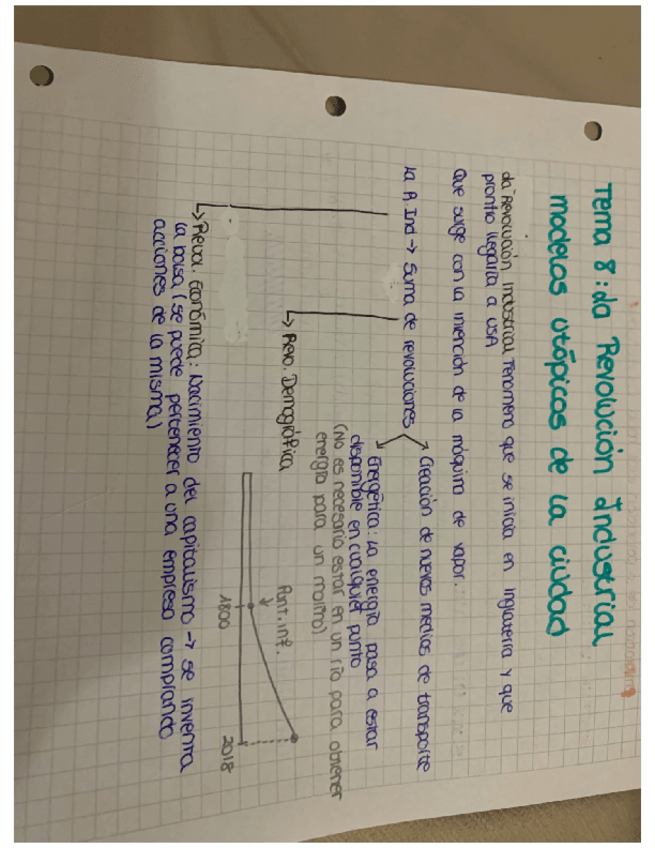 Tema 8: La Revolución Industrial
modelos utópicos de la ciudad
La Revolución Industrial Fenómeno que se inicia en Inglaterra y que
pronto llegaría a USA
Que surge con la invención de la máquina de vapor.
La R. Ind → Suma de revoluciones
Creación de nuevos medios de transporte
Energética: la energía pasa a estar
disponible en cualquier punto
(No es necesario estar en un río para obtener
energía para un molino)
↳ Revo. Demográfica
Punt. inf.
1800
2018
↳ Revol. Económica: Nacimiento del capitalismo → se inventa
la bolsa (se puede pertenecer a una empresa comprando
acciones de la misma)